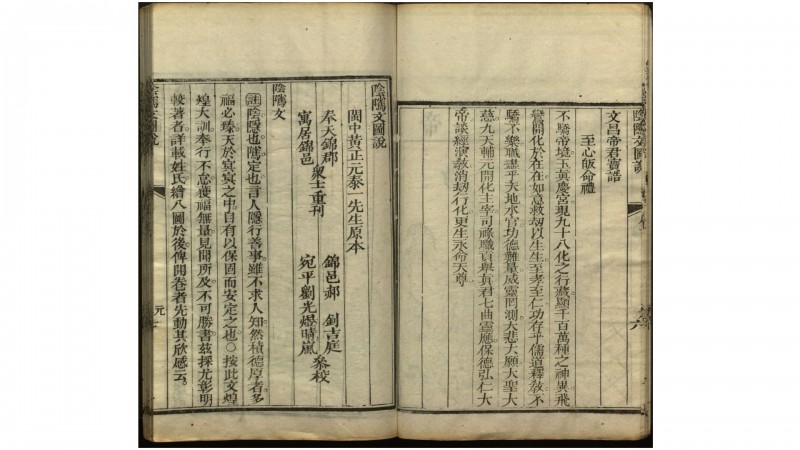 文昌帝君寶誥
至心皈命禮
不驕帝境玉真慶宮現九十八化之行藏顯千百萬種之神異飛
鸞開化於在在如意救劫以生生至孝至仁功存乎儒道釋教不
驕不樂職盡乎天地水官功德難量威靈罔測大悲大願大聖大
慈九天輔元開化主宰司祿職貢舉真君七曲靈應保德弘仁大
帝談經演教消劫行化更生永命天尊
陰隲文圖說
閩中黃正元泰一先生原本
奉天錦郡
寓居錦邑
衆士重刊
錦邑郝 釗吉庭
宛平劉光煜晴嵐
叅校
陰隲文
註陰隱也隲定也言人隱行善事雖不求人知然積德厚者多
福必臻天於冥冥之中自有以保固而安定之也○按此文煌
煌大訓奉行不怠獲福無量見聞所及不可勝書茲採尤彰明
較著者詳載姓氏繪八圖於後俾開卷者先動其欣感云
陰隲文圖說
元